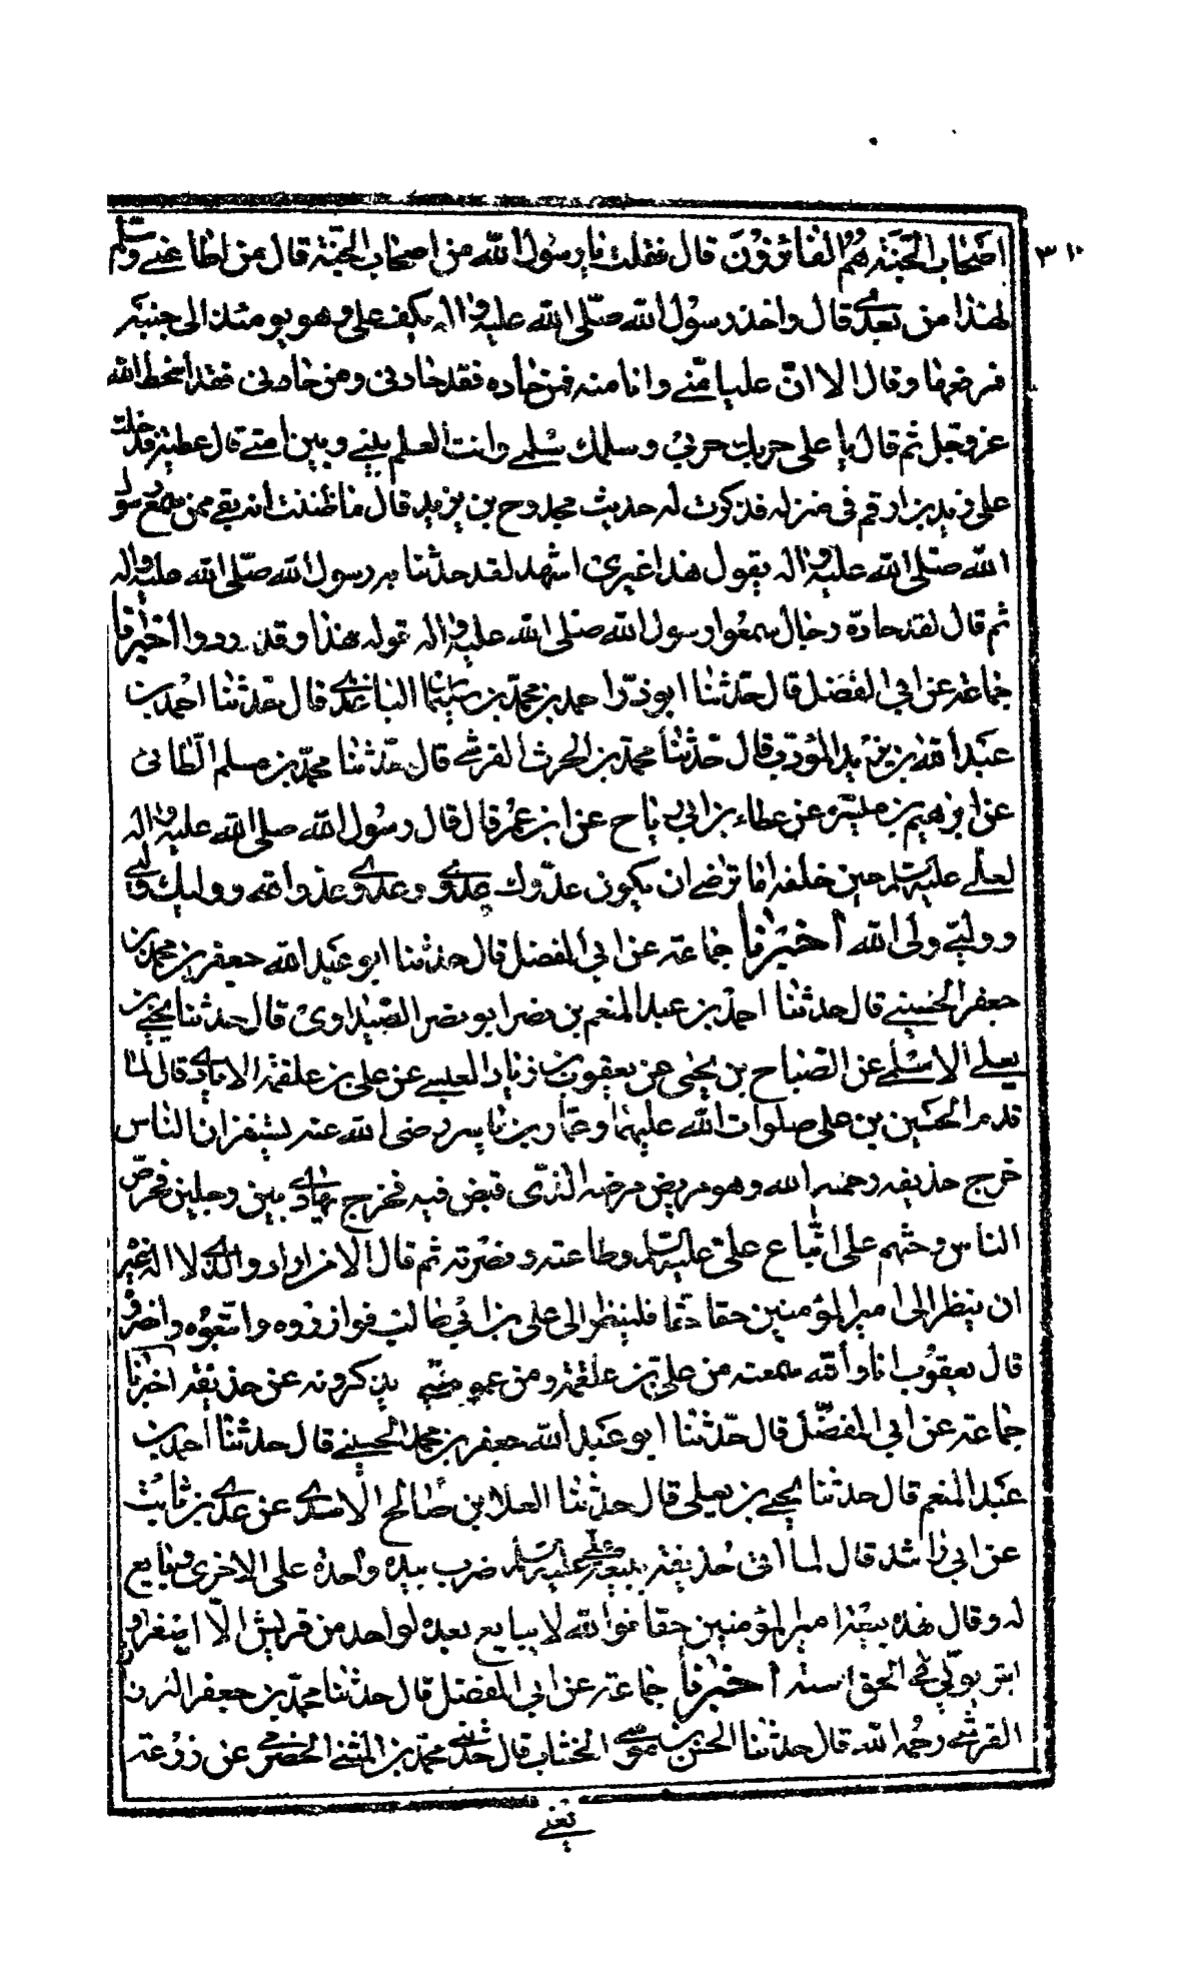 ٣١٠
اصحاب الجنة هم الفائزون قال فقلت يا رسول الله من اصحاب الجنة قال من اطاعني وسلم
لهذا من بعدي قال واخذ رسول الله صلى الله عليه واله بكف علي وهو يومئذ الى جنبه
فرفعها وقال الا ان عليا مني وانا منه فمن حاده فقد حادني ومن حادني فقد اسخط الله
عز وجل ثم قال يا علي حربك حربي وسلمك سلمي وانت العلم بيني وبين امتي قال عطية فدخلت
على زيد بن ارقم في منزله فذكرت له حديث محدوج بن يزيد قال ما ظننت انه بقي ممن سمع رسول
الله صلى الله عليه واله يقول هذا غيري اشهد لقد حدثنا به رسول الله صلى الله عليه واله
ثم قال لقد حاده رجال سمعوا رسول الله صلى الله عليه واله قوله هذا وقد ردوا اخبرنا
جماعة عن ابي المفضل قال حدثنا ابو ذر احمد بن محمد بن سليمان الباغندي قال حدثنا احمد بن
عبد الله بن يزيد المؤدب قال حدثنا محمد بن الحرث القرشي قال حدثنا محمد بن مسلم الطائفي
عن ابرهيم بن ميسرة عن عطاء بن ابي رباح عن ابن عمر قال قال رسول الله صلى الله عليه واله
لعلي عليه السلم حين خلفه اما ترضى ان يكون عدوك عدوي وعدوي عدو الله ووليك وليي
ووليي ولي الله أخبرنا جماعة عن ابي المفضل قال حدثنا ابو عبد الله جعفر بن محمد بن
جعفر الحسيني قال حدثنا احمد بن عبد المنعم بن نصر ابو نصر الصيداوي قال حدثنا يحيى بن
يعلى الاسلمي عن الصباح بن يحيى عن يعقوب بن زياد العبسي عن علي بن علقمة الايادي قال لما
قدم الحسين بن علي صلوات الله عليهما وعمار بن ياسر رضي الله عنه يستنفران الناس
خرج حذيفة رحمه الله وهو مريض مرضه الذي قبض فيه فخرج يهادى بين رجلين فحرض
الناس وحثهم على اتباع علي عليه السلم وطاعته ونصرته ثم قال الا من اراد والذي لا اله غيره
ان ينظر الى امير المؤمنين حقا حقا فلينظر الى علي بن ابي طالب فوازروه واتبعوه وانصروه
قال يعقوب انا والله سمعته من علي بن علقمة ومن عمومتي يذكرونه عن حذيفة اخبرنا
جماعة عن ابي المفضل قال حدثنا ابو عبد الله جعفر بن محمد الحسيني قال حدثنا احمد بن
عبد المنعم قال حدثنا يحيى بن يعلى قال حدثنا العلا بن صالح الاسدي عن عدي بن ثابت
عن ابي راشد قال لما اتى حذيفة ببيعة علي عليه السلم ضرب بيده واحدة على الاخرى وبايع
له وقال هذه بيعة امير المؤمنين حقا فوالله لا يبايع بعده لواحد من قريش الا اصغر او
ابتر يولي الحق استه أخبرنا جماعة عن ابي المفضل قال حدثنا محمد بن جعفر
القرشي رحمه الله قال حدثنا الحسن بن موسى الخشاب قال حدثني محمد بن المثنى الحضرمي عن زرعة
يعني